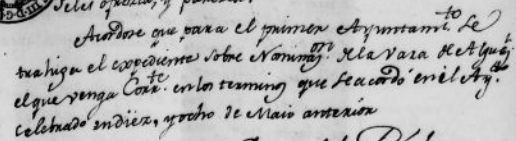 se les ofrezca, y parezca.
Acordose que para el primer Ayuntam.to se
trahiga el expediente sobre Nominaz.on de la Vara de Alguaz.l
el que venga Corr.te en los terminos que se acordó en el Ay.to
celebrado en diez, y ocho de Maio anterior